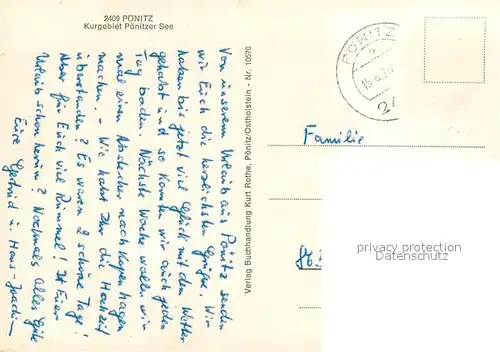 2409 PÖNITZ
Kurgebiet Pönitzer See
Von unserem Urlaub aus Pönitz senden
wir Euch die herzlichsten Grüße. Wir
haben bis jetzt viel Glück mit dem Wetter
gehabt und so konnten wir auch jeden
Tag baden. Nächste Woche wollen wir
mal einen Abstecher nach Kopenhagen
machen. - Wie habt Ihr die Hochzeit
überstanden? Es waren 2 schöne Tage!
Aber für Euch viel Rummel! Ist Euer
Urlaub schon herum? Nochmals alles Gute
Eure Gertrud u. Hans-Joachim
Verlag Buchhandlung Kurt Rothe, Pönitz/Ostholstein - Nr. 10570
PÖNITZ
Familie
privacy protection
AnsichtskartenVersand.com